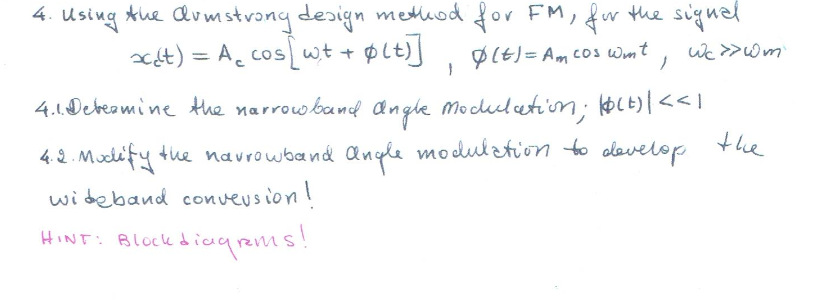 4. Using the Armstrong design method for FM, for the signal
x_c(t) = A_c cos[ωt + φ(t)] , φ(t) = A_m cos ω_m t , ω_c >> ω_m
4.1. Determine the narrowband angle modulation; |φ(t)| << 1
4.2. Modify the narrowband angle modulation to develop the
wideband conversion!
HINT: Block diagrams!